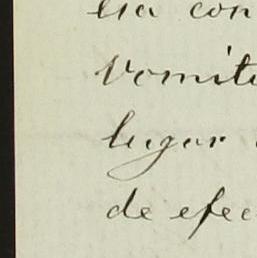 lia con
vomit
lugar
de efec